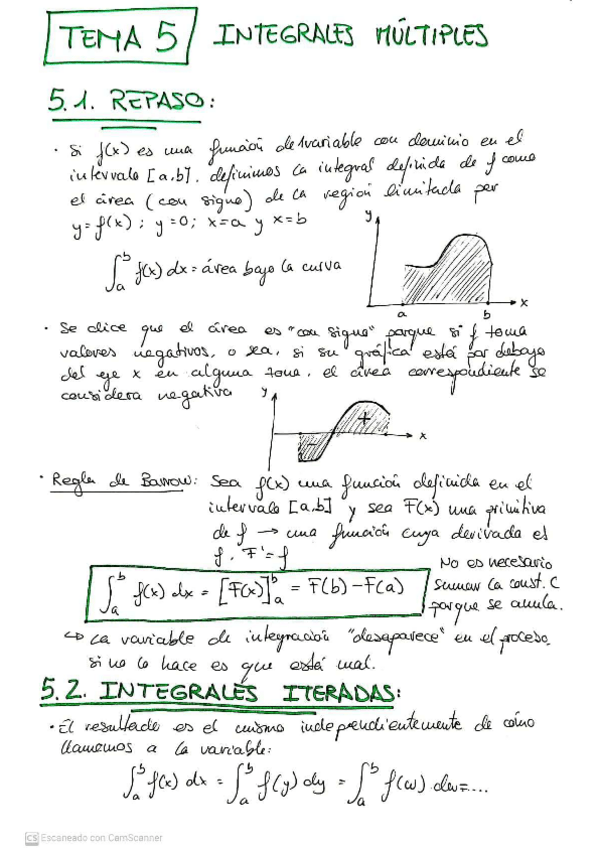 TEMA 5 INTEGRALES MÚLTIPLES
5.1. REPASO:
· Si f(x) es una función de 1 variable con dominio en el
intervalo [a,b]. definimos la integral definida de f como
el área (con signo) de la región limitada por
y=f(x) ; y=0; x=a y x=b
y
∫ₐᵇ f(x) dx = área bajo la curva
x
a b
· Se dice que el área es "con signo" porque si f toma
valores negativos, o sea, si su gráfica está por debajo
del eje x en alguna zona, el área correspondiente se
considera negativa
y
+
- x
· Regla de Barrow: Sea f(x) una función definida en el
intervalo [a,b] y sea F(x) una primitiva
de f → una función cuya derivada es
f. F'=f
∫ₐᵇ f(x) dx = [F(x)]ₐᵇ = F(b) - F(a)
No es necesario
sumar la const. C
porque se anula.
↳ La variable de integración "desaparece" en el proceso,
si no lo hace es que está mal.
5.2. INTEGRALES ITERADAS:
· El resultado es el mismo independientemente de cómo
llamemos a la variable:
∫ₐᵇ f(x) dx = ∫ₐᵇ f(y) dy = ∫ₐᵇ f(w). dw=....
CS Escaneado con CamScanner